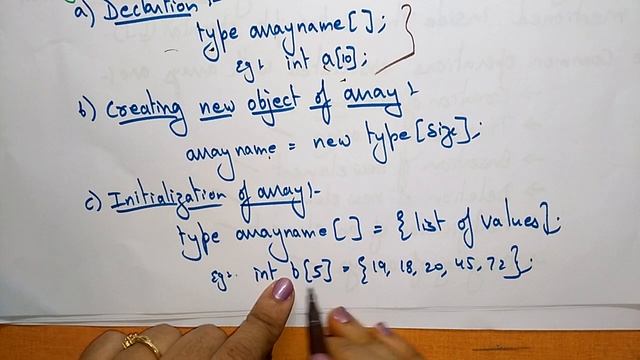 a) Declaration :-
type arrayname[];
eg:- int a[10];
b) Creating new object of array :-
arrayname = new type[size];
c) Initialization of array :-
type arrayname[] = {list of values};
eg:- int b[5] = {19, 18, 20, 45, 72};